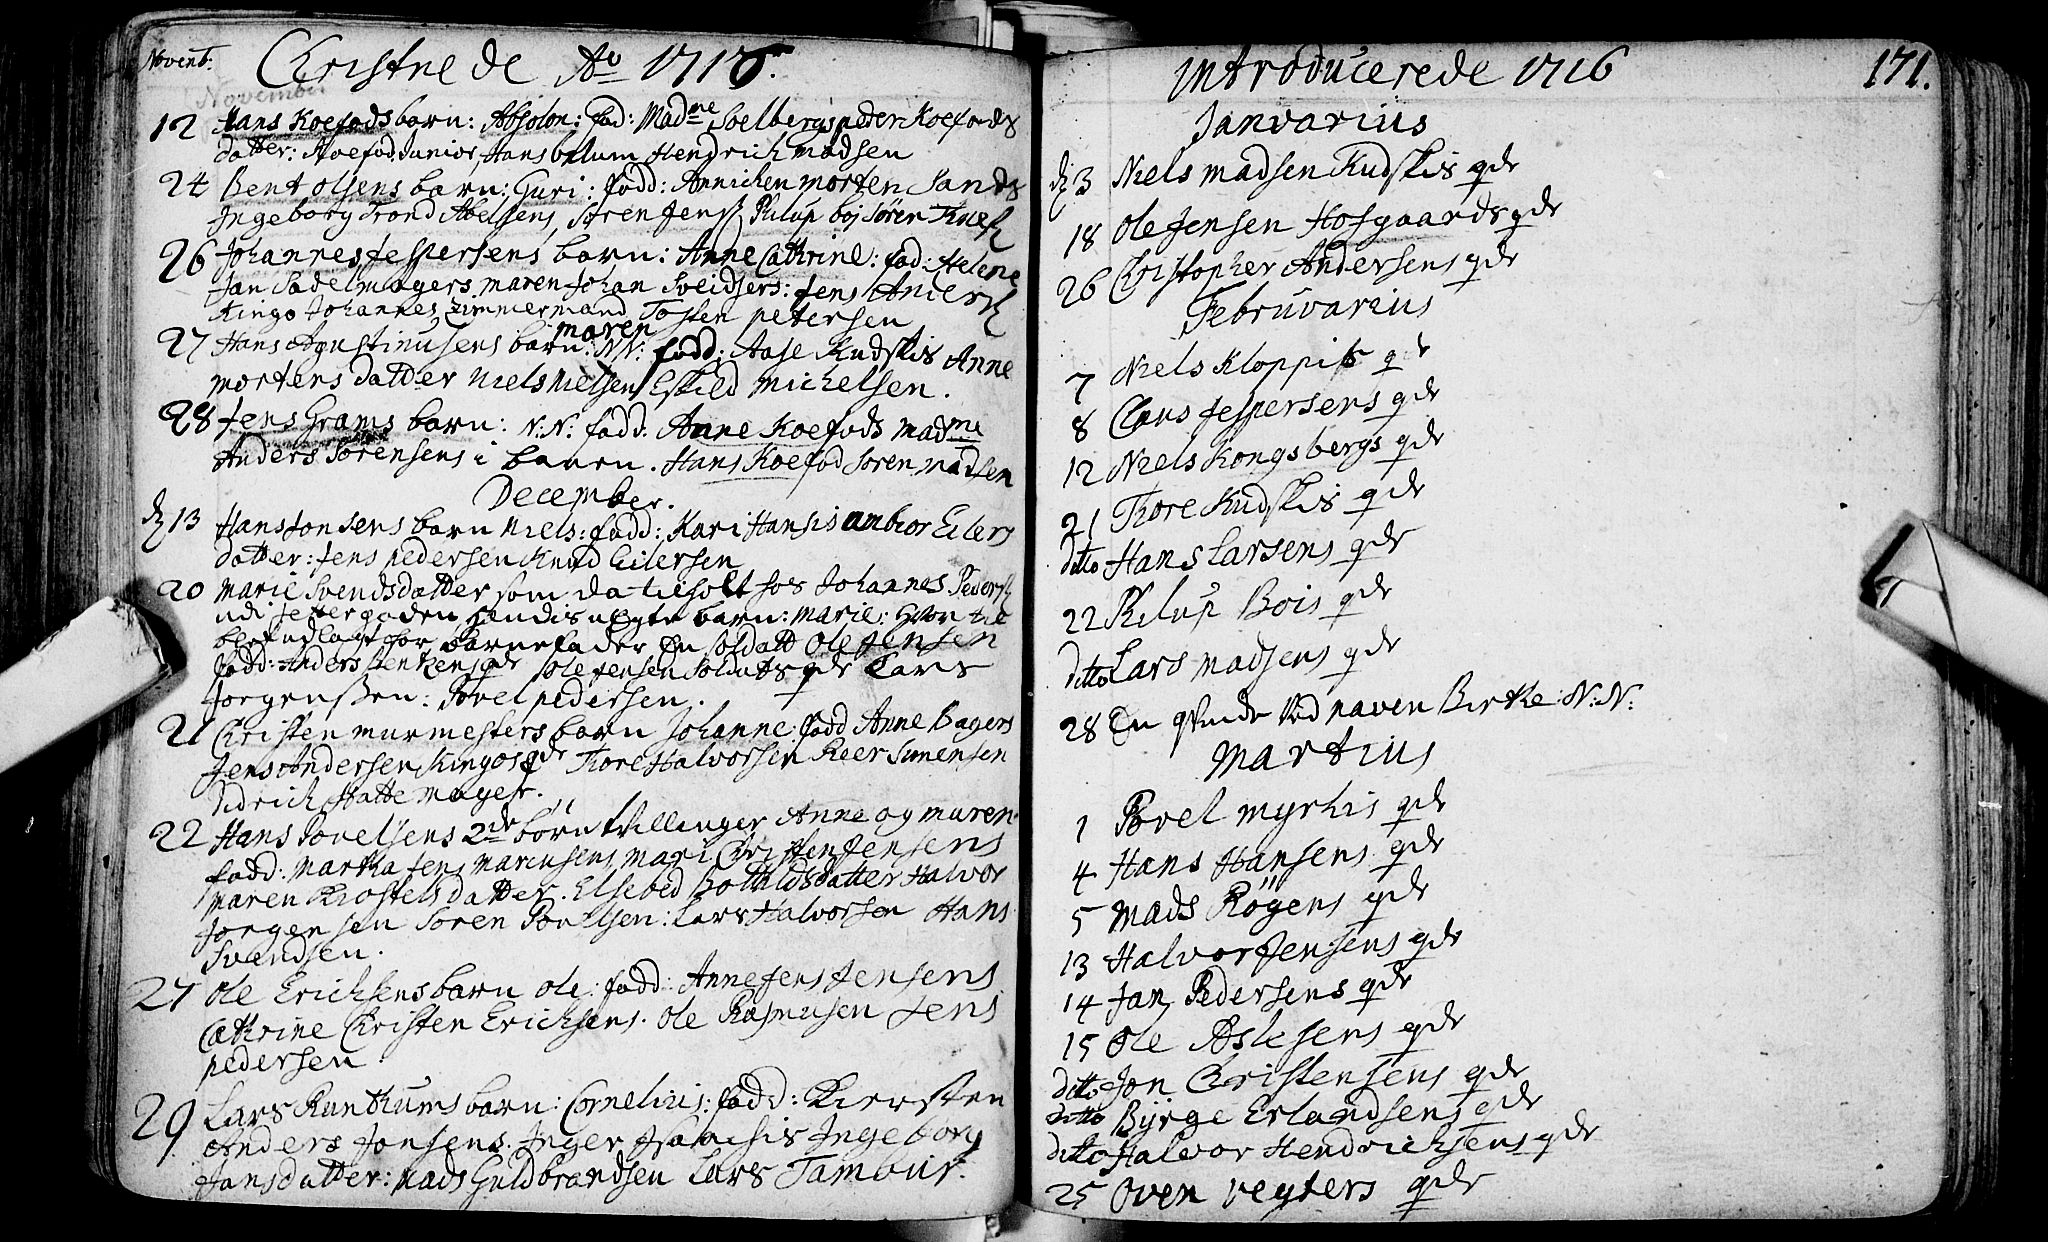 Novemb:
Christnede Ao 1715.
November
12 Hans Koefods barn: Absolon: fad: Madme Soelbergs peder Koefods
datter: Koefod Junior, Hans blum Hendrich madsen
24 Bent olsens barn: Guri: fadd: Annichen morten Sands
Ingeborg Trond Abelsens, Sören Jens Philup boj Sören
26 Johannes Jespersens barn: Anne Cathrine: fad: Helene
Jan Sadelmagers maren Johan Sveidsers: Jens Anders
Kingo Johannes Zimmermand Tosten petersen
maren
27 Hans Agustinusens barn: N.N: fadd: Aase Kudskis Anne
mortens datter Niels Nielsen Eskild Michelsen.
28 Jens Grams barn: N.N: fadd: Anne Koefods madme
Anders Sörensens i barn. Hans Koefod Soren madsen
December.
13 Hans Jonsens barn Niels: fadd: Kari Hansis Eilers
datter: Jens pedersen Knud Eilersen
20 Marie Svendsdatter som da tieholt hos Johannes Peders
udi gaden hendis uegte barn: Marie: hvor til
blef udlagt for barnefader En soldatt Ole Jensen
fadd: Anders qde Ole Jensen Soldats qde Lars
Jorgenssen: Povel pedersen.
21 Christen murmesters barn Johanne: fadd Anne Bagers
Jens Andersen Kingos qde Tore Halvorsen Peer Simensen
didrich Hatte mager.
22 Hans Povelsens 2de börn tvillinger Anne og maren
fadd: Martha Jens Marensens, Mari Christen Jensens
maren datter. Elsebed datter Halvor
Jorgensen Soren Povelsen: Lars Halvorsen Hans
Svendsen.
27 Ole Ericksens barn Ole: fadd: Anne Jens Jensens
Cathrine Christen Ericksens. Ole Rasmusen Jens
pedersen
29 Lars Runthums barn: Cornelius: fadd: Kiersten
Anders Jonsens. Inger Isaachsis Ingeborg
Jansdatter: Mads Guldbrandsen Lars Tamour.
Introducerede 1716
171.
Janvarius
3 Niels madsen Kudskis qde
18 Ole Jensen Hofgaards qde
26 Christopher Andersens qde
Februvarius
7 Niels Kloppis qde
8 Claus Jespersens qde
12 Niels Kongsbergs qde
21 Tore Kudskis qde
ditto Hans Larsens qde
22 Philup Bois qde
ditto Lars madsens qde
28 En qvinde Ved naven Birthe: N: N:
Martius
1 Povel myrhis qde
4 Hans Hansens qde
5 Mads Rögens qde
13 Halvor Jensens qde
14 Jan Pedersens qde
15 Ole Aslesens qde
ditto Jon Christensens qde
ditto Byrge Erlandsens qde
ditto Halvor Hendrichsens qde
25 Oven reyters qde